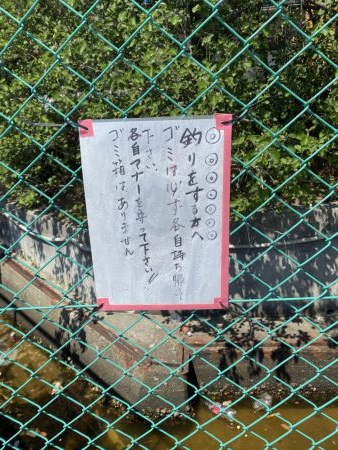 釣りをする方へ
◎◎◎◎◎◎
ゴミは必ず各自持ち帰って
下さい。
各自マナーを守って下さい!!
ゴミ箱はありません